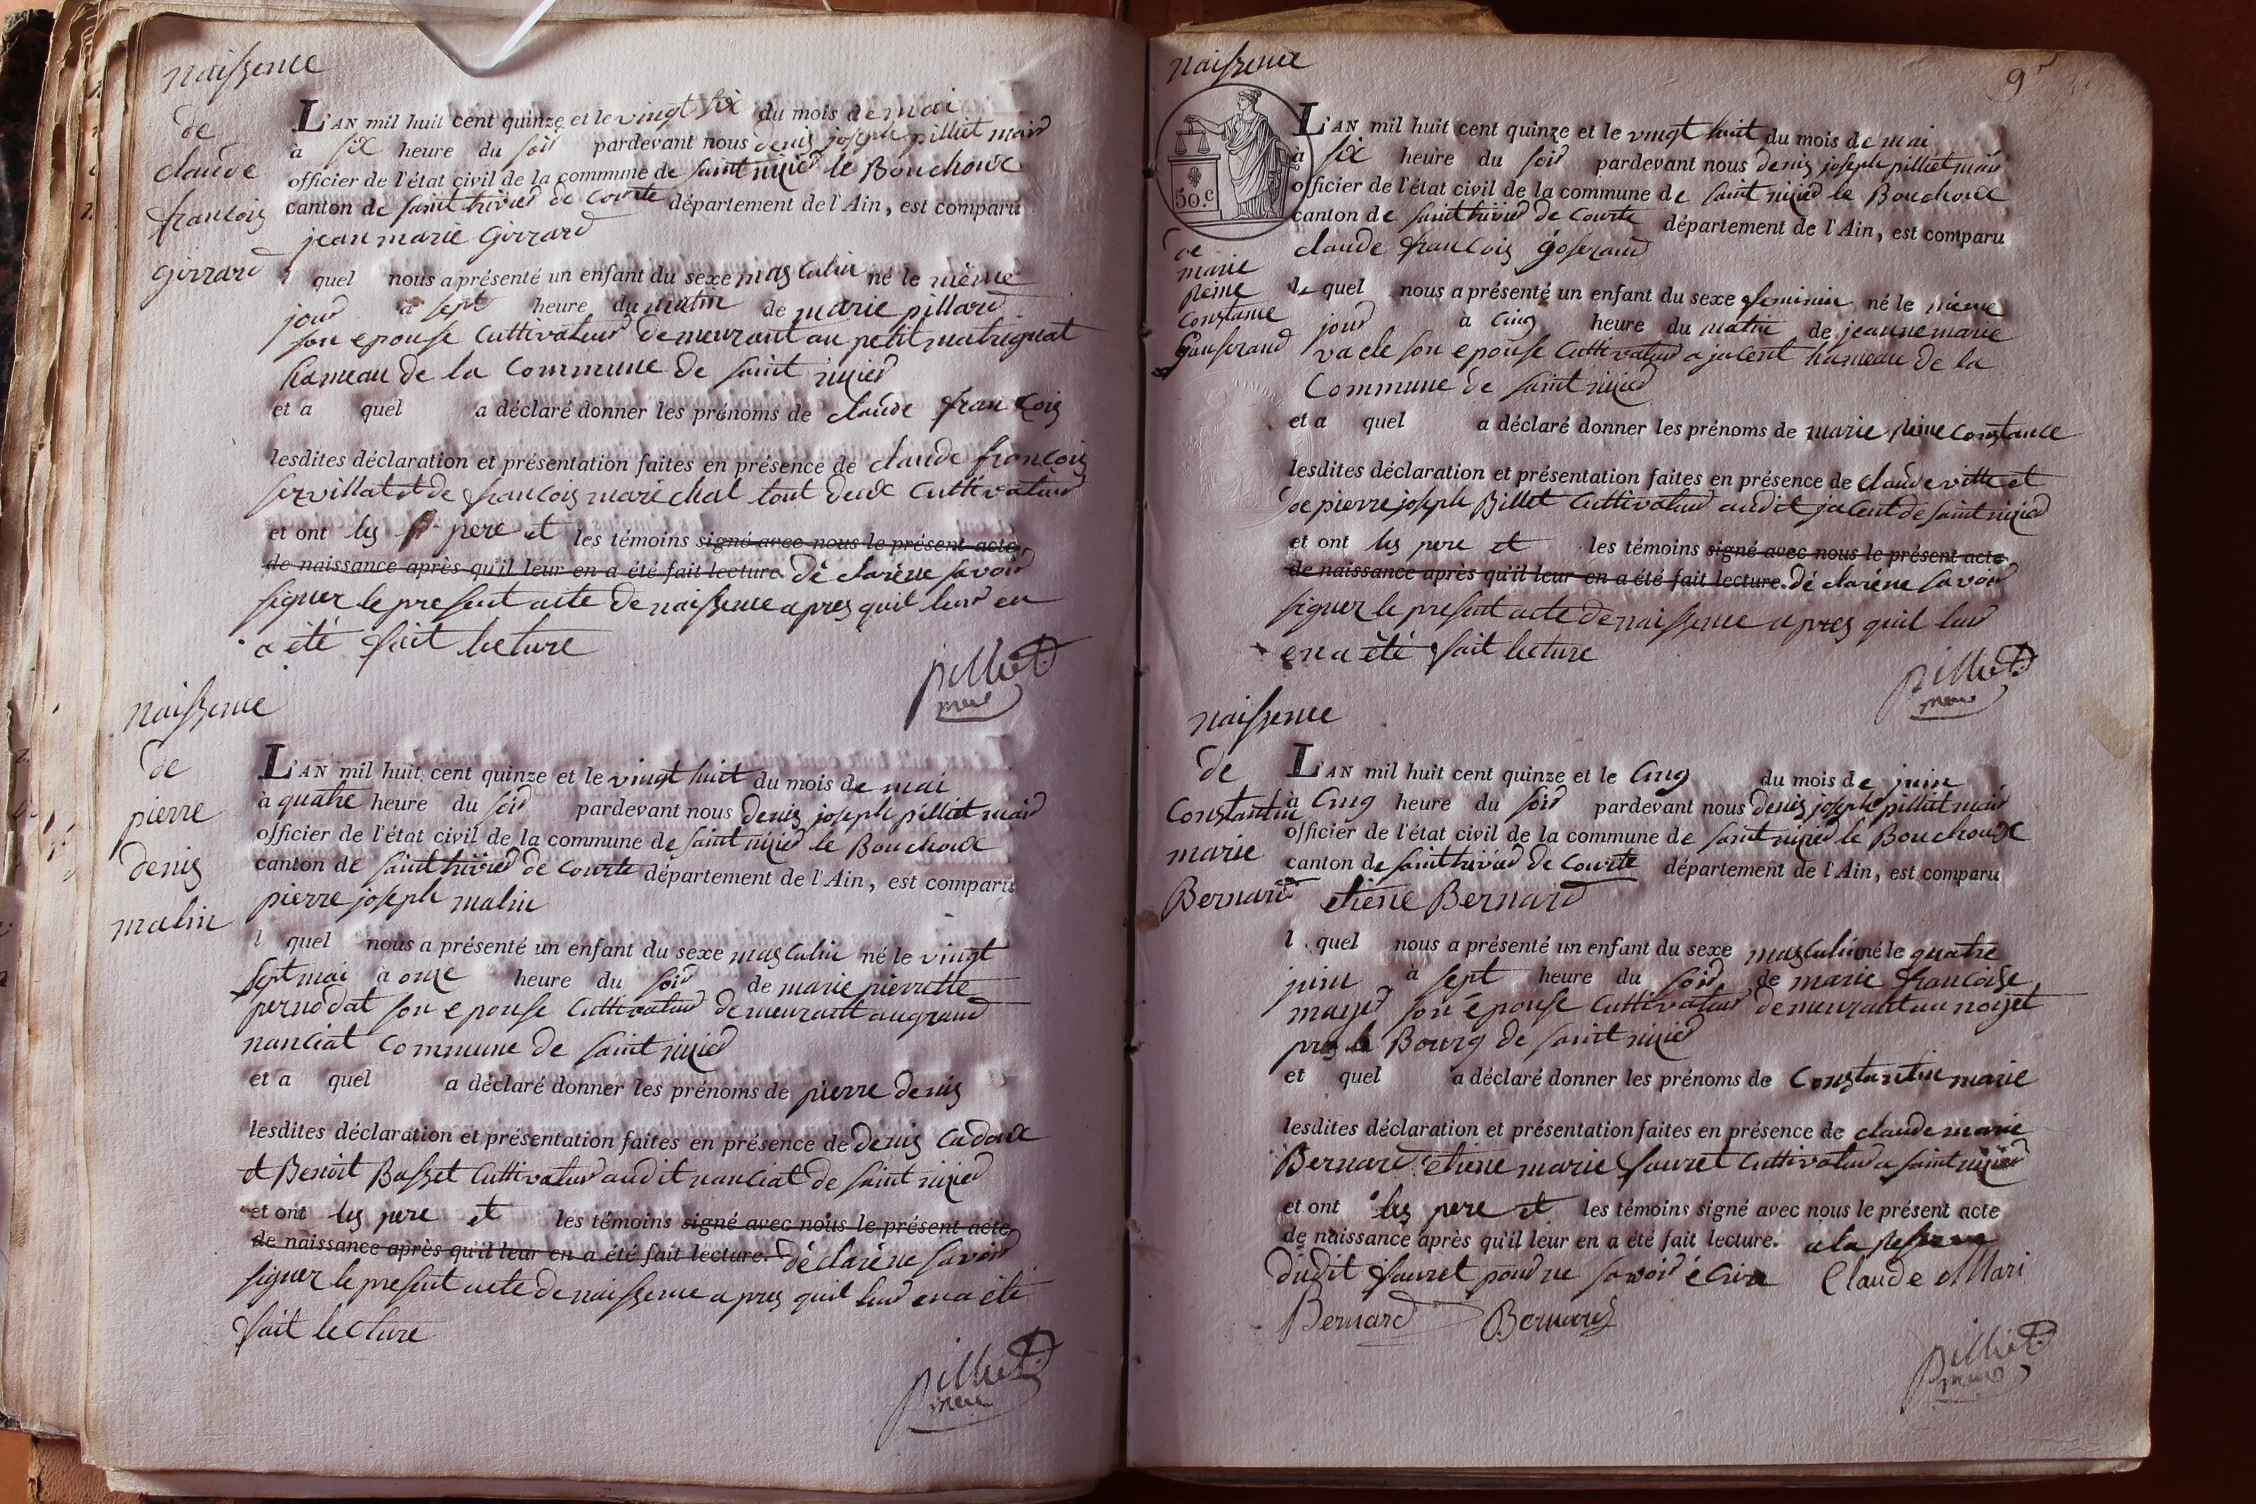 Naissence
de
claude
francois
girrard
L'AN mil huit cent quinze et le vingt six du mois de mai
à six heure du soir pardevant nous denis joseph pilliet maire
officier de l'état civil de la commune de saint nizier le Bouchoux
canton de saint trivier de courte département de l'Ain, est comparu
jean marie girrard
l quel nous a présenté un enfant du sexe masculin né le même
jour à sept heure du matin de marie pillard
son epouse cuttivateur demeurant au petit matrignat
hameau de la commune de saint nizier
et a quel a déclaré donner les prénoms de claude francois
lesdites déclaration et présentation faites en présence de claude francois
servillat et de francois marechal tout deux cuttivateur
et ont les pere et les témoins signé avec nous le présent acte
de naissance après qu'il leur en a été fait lecture. déclaré ne savoir
signer le present acte de naissence apres quil leur en
a été fait lecture
pilliet
maire
Naissence
de
pierre
denis
malin
L'AN mil huit cent quinze et le vingt huit du mois de mai
à quatre heure du soir pardevant nous denis joseph pilliet maire
officier de l'état civil de la commune de saint nizier le Bouchoux
canton de saint trivier de courte département de l'Ain, est comparu
pierre joseph malin
l quel nous a présenté un enfant du sexe masculin né le vingt
sept mai à onze heure du soir de marie pierrette
pernodat son epouse cuttivateur demeurant au grand
nanciat commune de saint nizier
et a quel a déclaré donner les prénoms de pierre denis
lesdites déclaration et présentation faites en présence de denis cadoux
et Benoit Basset cuttivateur audit nanciat de saint nizier
et ont les pere et les témoins signé avec nous le présent acte
de naissance après qu'il leur en a été fait lecture. déclaré ne savoir
signer le present acte de naissence apres quil leur en a été
fait lecture
pilliet
maire
9
Naissence
50.c
de
marie
reine
constance
Gauserand
L'AN mil huit cent quinze et le vingt huit du mois de mai
à six heure du soir pardevant nous denis joseph pilliet maire
officier de l'état civil de la commune de saint nizier le Bouchoux
canton de saint trivier de courte département de l'Ain, est comparu
claude francois goserand
le quel nous a présenté un enfant du sexe feminin né le même
jour à cinq heure du matin de jeanne marie
vacle son epouse cuttivateur a jalent hameau de la
commune de saint nizier
et a quel a déclaré donner les prénoms de marie reine constance
lesdites déclaration et présentation faites en présence de claude vitte et
de pierre joseph Billet cuttivateur audit jalent de saint nizier
et ont les pere et les témoins signé avec nous le présent acte
de naissance après qu'il leur en a été fait lecture. déclaré ne savoir
signer le present acte de naissence apres quil leur
en a été fait lecture
pilliet
maire
Naissence
de
Constantin
marie
Bernard
L'AN mil huit cent quinze et le cinq du mois de juin
à cinq heure du soir pardevant nous denis joseph pilliet maire
officier de l'état civil de la commune de saint nizier le Bouchoux
canton de saint trivier de courte département de l'Ain, est comparu
etiene Bernard
l quel nous a présenté un enfant du sexe masculin né le quatre
juin à sept heure du soir de marie francoise
mayer son épouse cuttivateur demeurant au noyet
pres le Bourg de saint nizier
et quel a déclaré donner les prénoms de Constantin marie
lesdites déclaration et présentation faites en présence de claude marie
Bernard etiene marie fauret cuttivateur a saint nizier
et ont les pere et les témoins signé avec nous le présent acte
de naissance après qu'il leur en a été fait lecture. a la reserve
dudit fauret pour ne savoir écrire Claude Mari
Bernard Bernard
pilliet
maire